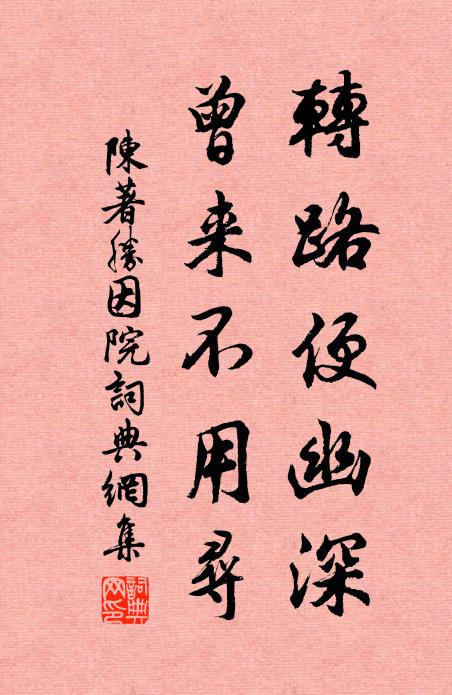 轉路便幽深
曾来不用尋
陳著勝因院詞典網集
詞典網印